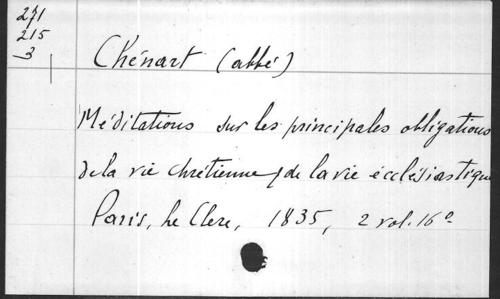 271
215
3
Chénart (abbé)
Méditations sur les principales obligations
de la vie chrétienne, de la vie écclésiastique
Paris, Le Clere, 1835, 2 vol. 16º